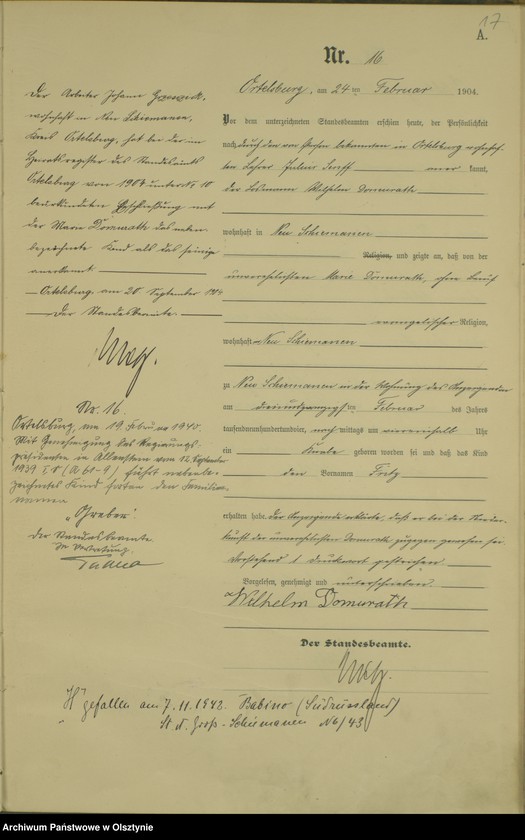 17
A.
Nr. 16
Ortelsburg, am 24ten Februar 1904.
Vor dem unterzeichneten Standesbeamten erschien heute, der Persönlichkeit
nach durch den von Person bekannten in Ortelsburg wohnhaf-
ten Lehrer Julius kannt,
der Losmann Wilhelm Domurath
wohnhaft in Neu Schiemanen
Religion, und zeigte an, daß von der
unverehelichten Marie Domurath, ohne Beruf
evangelischer Religion,
wohnhaft Neu Schiemanen
zu Neu Schiemanen in der Wohnung des Anzeigenden
am dreiundzwanzigsten Februar des Jahres
tausendneunhundertundvier, nachmittags um viereinhalb Uhr
ein Knabe geboren worden sei und daß das Kind
den Vornamen Fritz
erhalten habe. Der Anzeigende erklärte, daß er bei der Nieder-
kunft der unverehelichten Domurath zugegen gewesen sei.
Vorstehend 1 Druckwort gestrichen.
Vorgelesen, genehmigt und unterschrieben
Wilhelm Domurath
Der Standesbeamte.
Der Arbeiter Johann
wohnhaft in Neu Schiemanen,
Kreis Ortelsburg, hat bei der im
Heiratsregister des Standesamts
Ortelsburg von 1904 unter Nr. 10
beurkundeten Eheschließung mit
der Marie Domurath das neben-
bezeichnete Kind als das seinige
anerkannt
Ortelsburg, am 20 September 1904
Der Standesbeamte.
Nr. 16.
Ortelsburg, am 19. Februar 1940.
Mit Genehmigung des Regierungs-
präsidenten in Allenstein vom 12. September
1939 führt nebenbe-
zeichnetes Kind fortan den Familien-
namen
"Greber".
Der Standesbeamte
In Vertretung.
H gefallen am 7.11.1942. Babino (Südrussland)
St. A. Groß-Schiemanen No 6/43
Archiwum Państwowe w Olsztynie